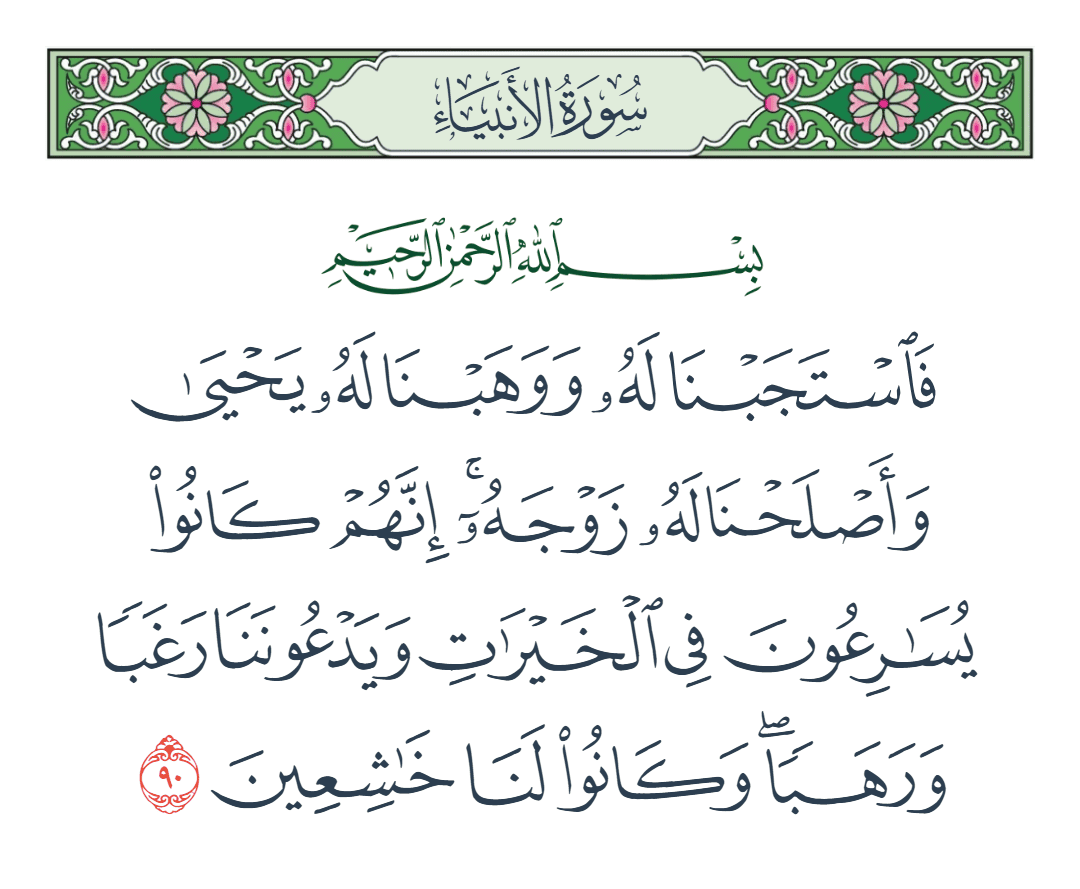 سُورَةُ الأَنبِيَاءِ
بِسْمِ ٱللَّهِ ٱلرَّحْمَٰنِ ٱلرَّحِيمِ
فَٱسْتَجَبْنَا لَهُۥ وَوَهَبْنَا لَهُۥ يَحْيَىٰ
وَأَصْلَحْنَا لَهُۥ زَوْجَهُۥٓ ۚ إِنَّهُمْ كَانُوا۟
يُسَـٰرِعُونَ فِى ٱلْخَيْرَٰتِ وَيَدْعُونَنَا رَغَبًا
وَرَهَبًا ۖ وَكَانُوا۟ لَنَا خَـٰشِعِينَ ٩٠